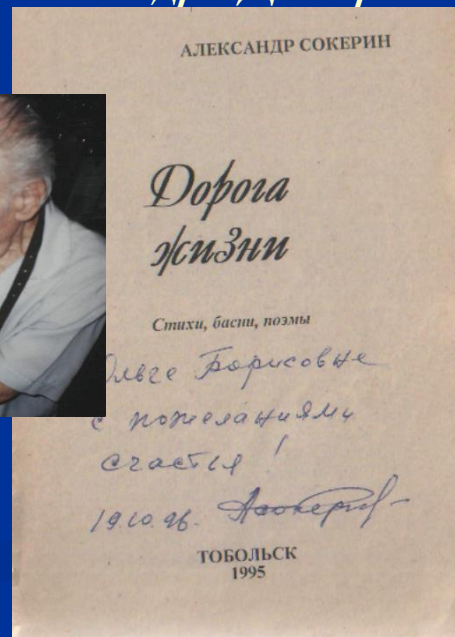 АЛЕКСАНДР СОКЕРИН
Дорога
жизни
Стихи, басни, поэмы
Ольге Борисовне
с пожеланиями
счастья!
19.10.96.
ТОБОЛЬСК
1995